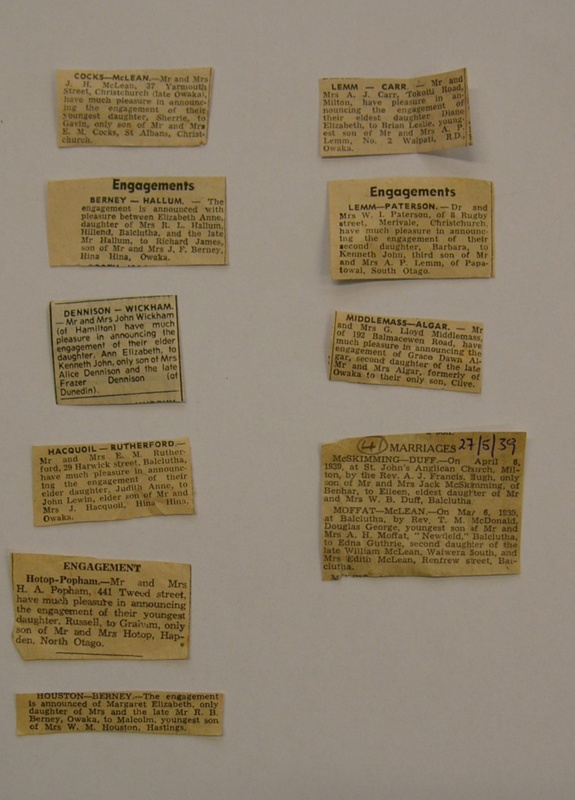 COCKS—McLEAN.—Mr and Mrs
J. H. McLean, 37 Yarmouth
Street, Christchurch (late Owaka),
have much pleasure in announc-
ing the engagement of their
youngest daughter, Sherrie, to
Gavin, only son of Mr and Mrs
E. M. Cocks, St Albans, Christ-
church.
Engagements
BERNEY — HALLUM. — The
engagement is announced with
pleasure between Elizabeth Anne,
daughter of Mrs R. L. Hallum,
Hillend, Balclutha, and the late
Mr Hallum, to Richard James,
son of Mr and Mrs J. F. Berney,
Hina Hina, Owaka.
DENNISON — WICKHAM.
— Mr and Mrs John Wickham
(of Hamilton) have much
pleasure in announcing the
engagement of their elder
daughter, Ann Elizabeth, to
Kenneth John, only son of Mrs
Alice Dennison and the late
Frazer Dennison (of
Dunedin).
HACQUOIL — RUTHERFORD.—
Mr and Mrs E. M. Ruther-
ford, 29 Harwick street, Balclutha,
have much pleasure in announc-
ing the engagement of their
elder daughter, Judith Anne, to
John Lewin, elder son of Mr and
Mrs J. Hacquoil, Hina Hina,
Owaka.
ENGAGEMENT
Hotop-Popham.—Mr and Mrs
H. A. Popham, 441 Tweed street,
have much pleasure in announcing
the engagement of their youngest
daughter, Russell, to Graham, only
son of Mr and Mrs Hotop, Hap-
den, North Otago.
HOUSTON—BERNEY.—The engagement
is announced of Margaret Elizabeth, only
daughter of Mrs and the late Mr R. B.
Berney, Owaka, to Malcolm, youngest son
of Mrs W. M. Houston, Hastings.
LEMM — CARR. — Mr and
Mrs A. J. Carr, Tokoiti Road,
Milton, have pleasure in an-
nouncing the engagement of
their eldest daughter Diane
Elizabeth, to Brian Leslie, young-
est son of Mr and Mrs A. P.
Lemm, No. 2 Waipati, R.D.,
Owaka.
Engagements
LEMM-PATERSON. — Dr and
Mrs W. I. Paterson, of 8 Rugby
street, Merivale, Christchurch,
have much pleasure in announc-
ing the engagement of their
second daughter, Barbara, to
Kenneth John, third son of Mr
and Mrs A. P. Lemm, of Papa-
towai, South Otago.
MIDDLEMASS-ALGAR. — Mr
and Mrs G. Lloyd Middlemass,
of 192 Balmacewen Road, have
much pleasure in announcing the
engagement of Grace Dawn Al-
gar, second daughter of the late
Mr and Mrs Algar, formerly of
Owaka to their only son, Clive.
(41) MARRIAGES 27/5/39
McSKIMMING—DUFF.—On April 6,
1939, at St. John's Anglican Church, Mil-
ton, by the Rev. A. J. Francis, Hugh, only
son of Mr and Mrs Jack McSkimming, of
Benhar, to Eileen, eldest daughter of Mr
and Mrs W. B. Duff, Balclutha
MOFFAT—McLEAN.—On Mar 6, 1939,
at Balclutha, by Rev. T. M. McDonald,
Douglas George, youngest son of Mr and
Mrs A. H. Moffat, "Newfield," Balclutha,
to Edna Guthrie, second daughter of the
late William McLean, Waiwera South, and
Mrs Edith McLean, Renfrew street, Bal-
clutha.